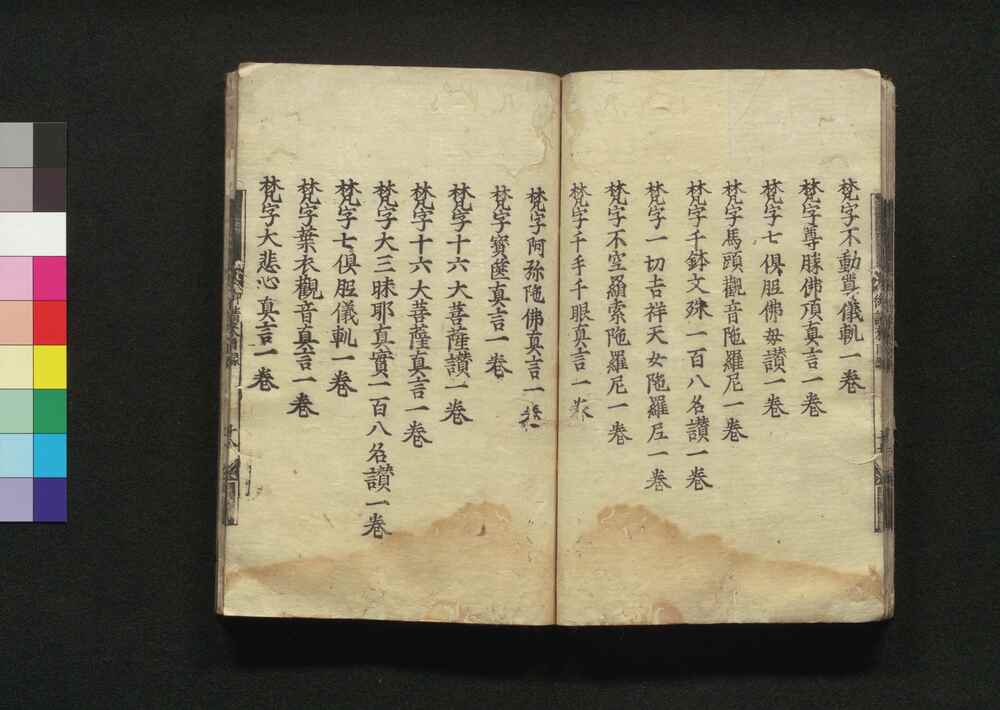 梵字不動尊儀軌一卷
梵字尊勝佛頂真言一卷
梵字七俱胝佛母讃一卷
梵字馬頭觀音陁羅尼一卷
梵字千鉢文殊一百八名讃一卷
梵字一切吉祥天女陁羅尼一卷
梵字不空羂索陁羅尼一卷
梵字千手千眼真言一卷
梵字阿弥陁佛真言一卷
梵字寳篋真言一卷
梵字十六大菩薩讃一卷
梵字十六大菩薩真言一卷
梵字大三昧耶真實一百八名讃一卷
梵字七俱胝儀軌一卷
梵字葉衣觀音真言一卷
梵字大悲心真言一卷